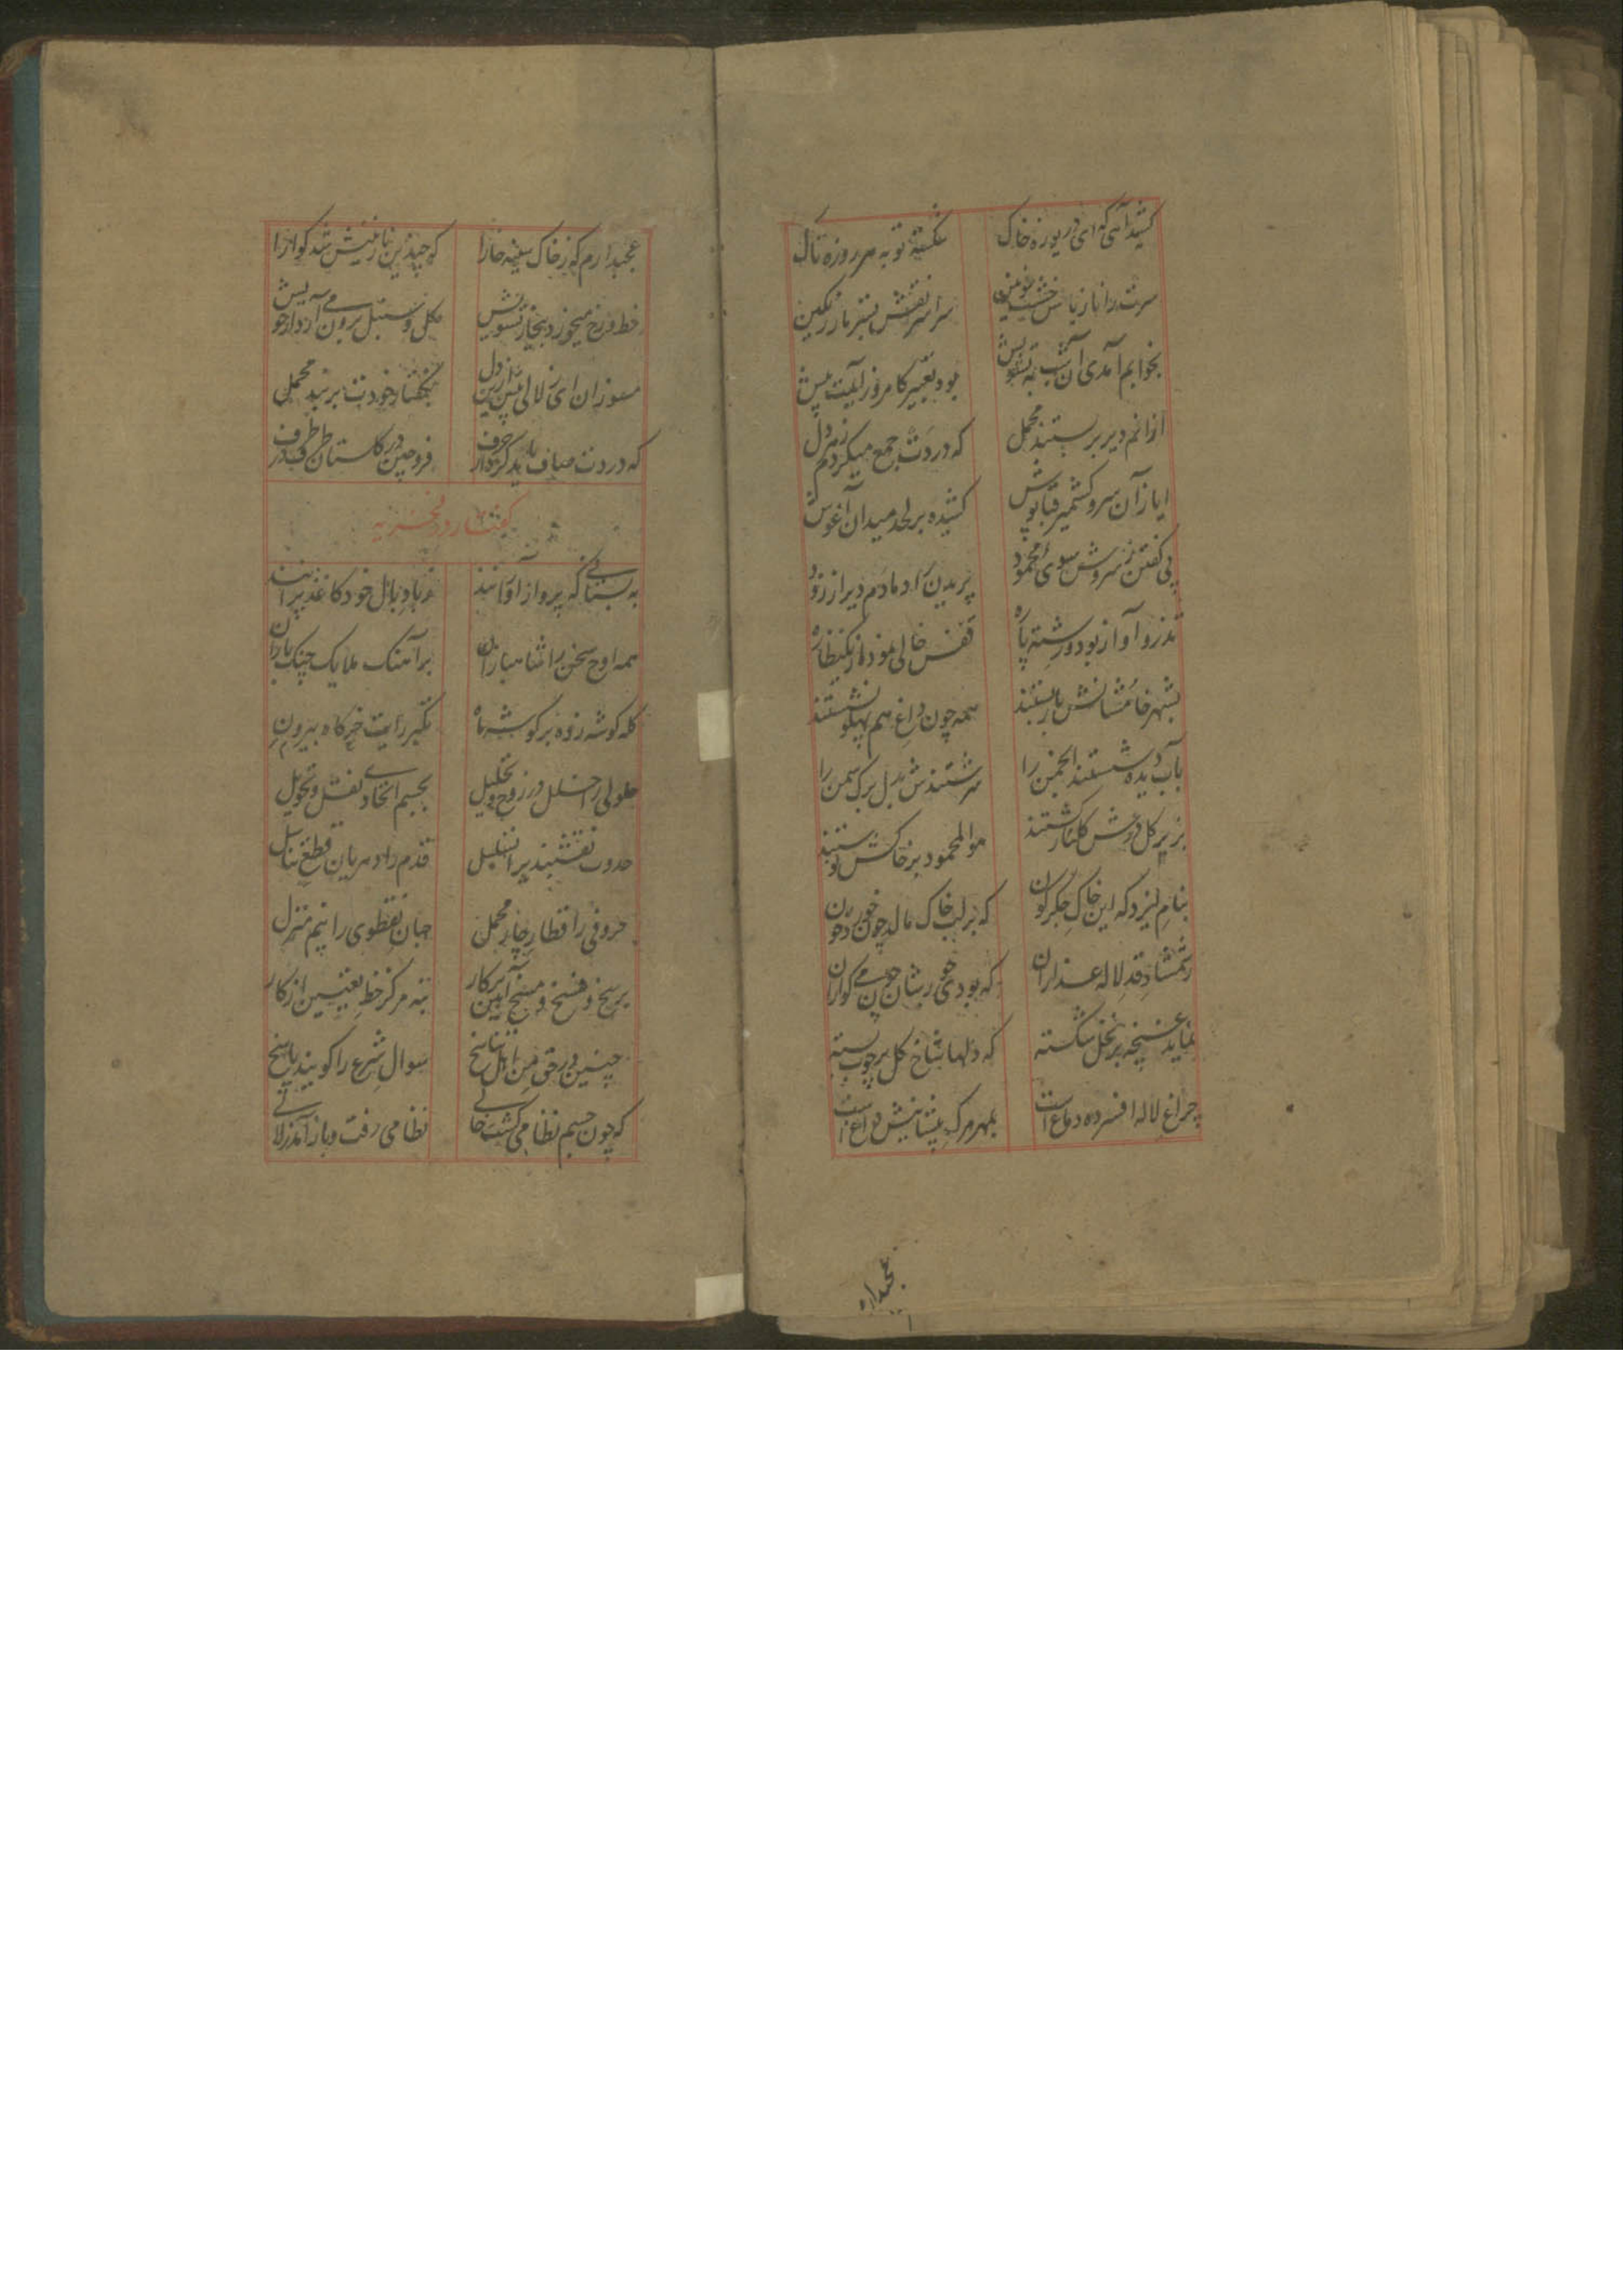 کشیدآهی که ای دریوزه خاک شکسته توبه هر روزه تاک
سرت را ناز بالش خشت سراسر نقش بستر ناز رنگین
بخوابم آمدی آن شب به تشویش بود تعبیر کامروز آیت پیش
ازانم دیر بر بستند محمل که دردت جمع میکردم ز هر دل
ایاز آن سرو کشمیر قباپوش کشیده بر لحد میدان آغوش
پی گفتن ز سروش سوی محمود پریدن زاد مادم دیر از زود
تذرو آواز بود و رشته پاره قفس خالی نمود از یک نظاره
بشهر خامشانش بار بستند همه چون داغ هم پهلو نشستند
بآب دیده شستند انجمن را سرشتندش بدل برگ سمن را
بزیر گل درش گلنار کشتند هوالمحمود بر خاکش نوشتند
بنام ایزد که این خاک جگرگون که بر لب خاک مالد چون خورد خون
ز شمشاد قد لاله عذاران که بودی خوی رشان چون می گواران
نماید غنچه بر نخل شکسته که دلها شاخ گل بر چوب بسته
چراغ لاله افسرده دماغ است بمهر مرگ پیشانیش داغ است
عجبداره
عجبدارم که ز خاک سینه خارا که چندین نازنینش شد گوارا
خط و رخ میخورد بیخار تشویش گل و سنبل برون می آرد از خویش
مسوزان ای زلالی بیش ازین دل بگفتار خودت بر بند محمل
که دردت صاف باید کرد از حرف فرو چین در گلستان طرف در طرف
گفتار در فخریه
به بستانی که پرواز آورانند ز باد بال خود کاغذ پرانند
همه اوج سخن را شاهبازان بر آهنگ ملایک چنگ یازان
کله گوشه زده بر گوشه ماه تکبر رایت خرگاه بیرون
حلولی را خلل در زوج و تحلیل بجسم اتحادی نقش و تحویل
حدوث نقشبند پر تسلیل قدم را دهریان قطع تناسل
حروفی را قطار چار محمل جهان نقطوی را نیم منزل
برسخ و فسخ و مسخ آیین پرکار نه مرکز خط تعیین از کار
چنین درحق من اهل تناسخ سوال شرع را گویند پاسخ
که چون جسم نظامی گشت خالی نظامی رفت و باز آمد زلالی